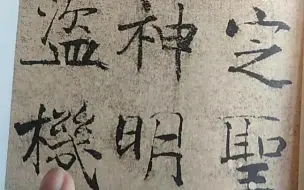 定聖
神明
盜機